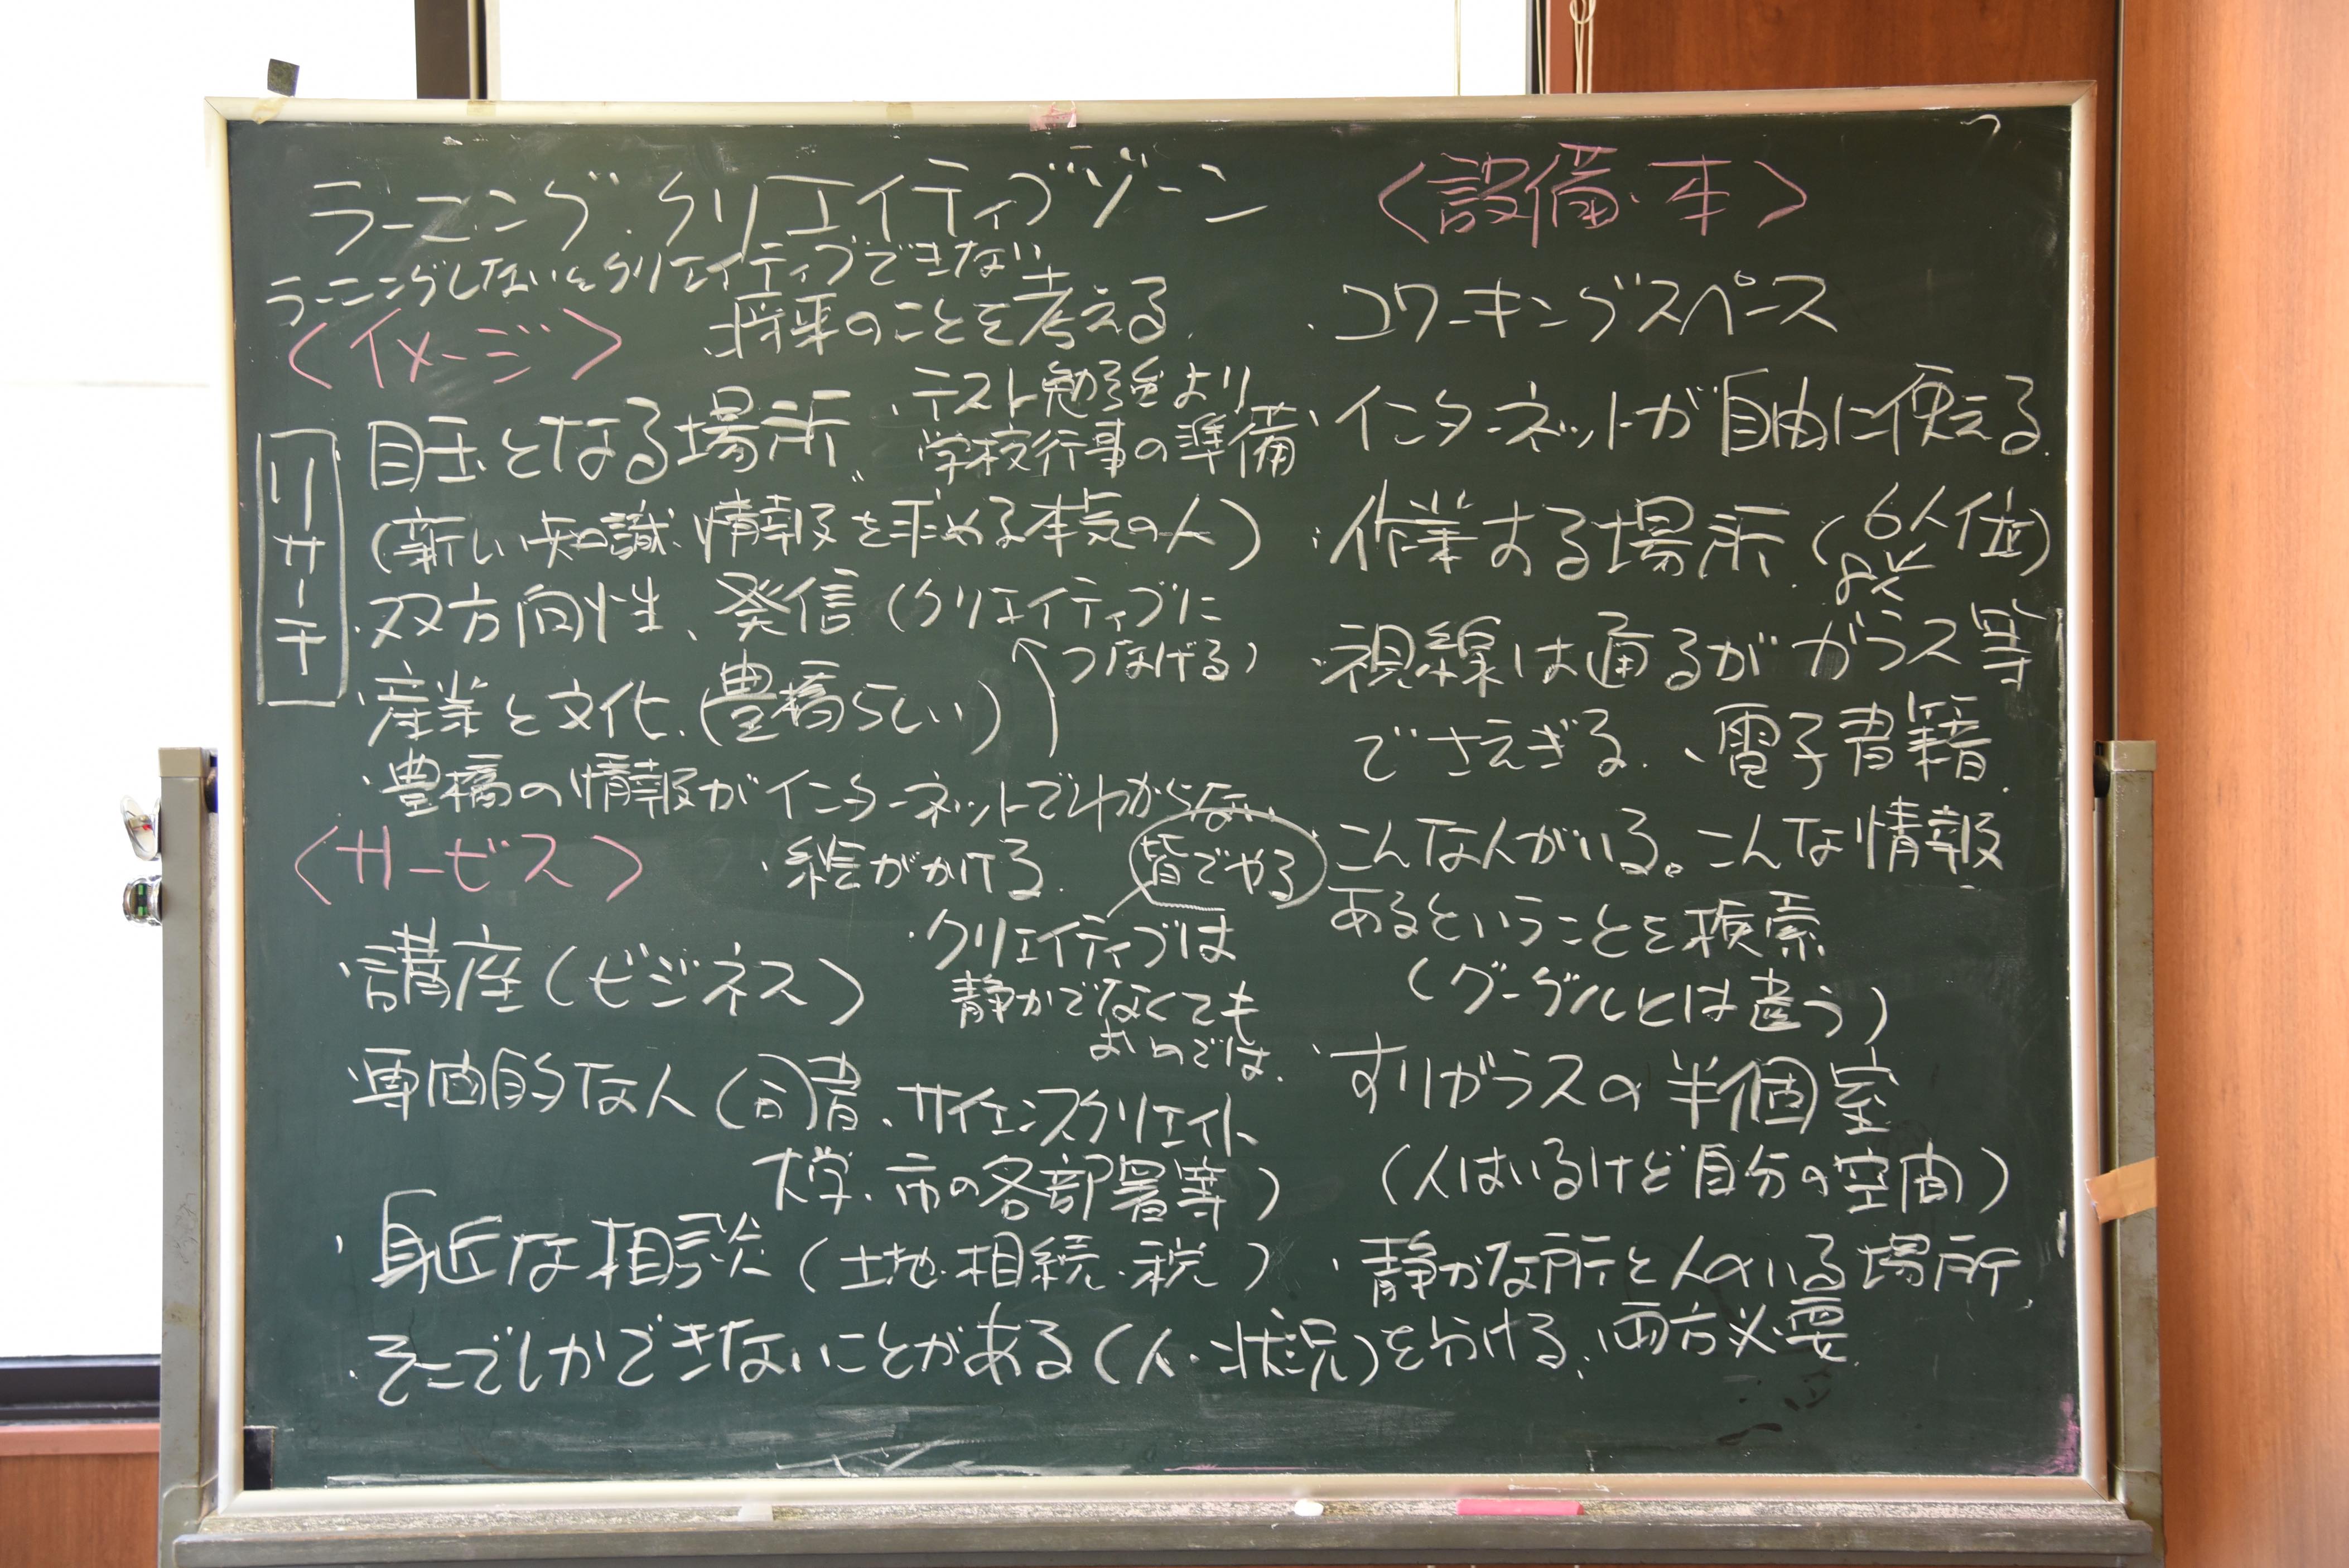 ラーニング・クリエイティブゾーン
ラーニングしないとクリエイティブできない
将来のことを考える
<イメージ>
リサーチ
目玉となる場所
・テスト勉強より
学校行事の準備
(新しい知識、情報を求める本気の人)
・双方向性、発信(クリエイティブに
つなげる)
・産業と文化、(豊橋らしい)
・豊橋の情報がインターネットでわからない
<サービス>
・絵がかける
皆でやる
・クリエイティブは
静かでなくても
よいのでは
・講座(ビジネス)
・専門的な人(司書、サイエンスクリエイト
大学、市の各部署等)
・身近な相談(土地・相続・税)
・そこでしかできないことがある(人・状況)
<設備・本>
・コワーキングスペース
・インターネットが自由に使える
・作業する場所(6人位)
・視線は通るがガラス等
でさえぎる、・電子書籍
こんな人がいる。こんな情報
あるということを検索
(グーグルとは違う)
・すりガラスの半個室
(人はいるけど自分の空間)
・静かな所と人のいる場所
を分ける、両方必要